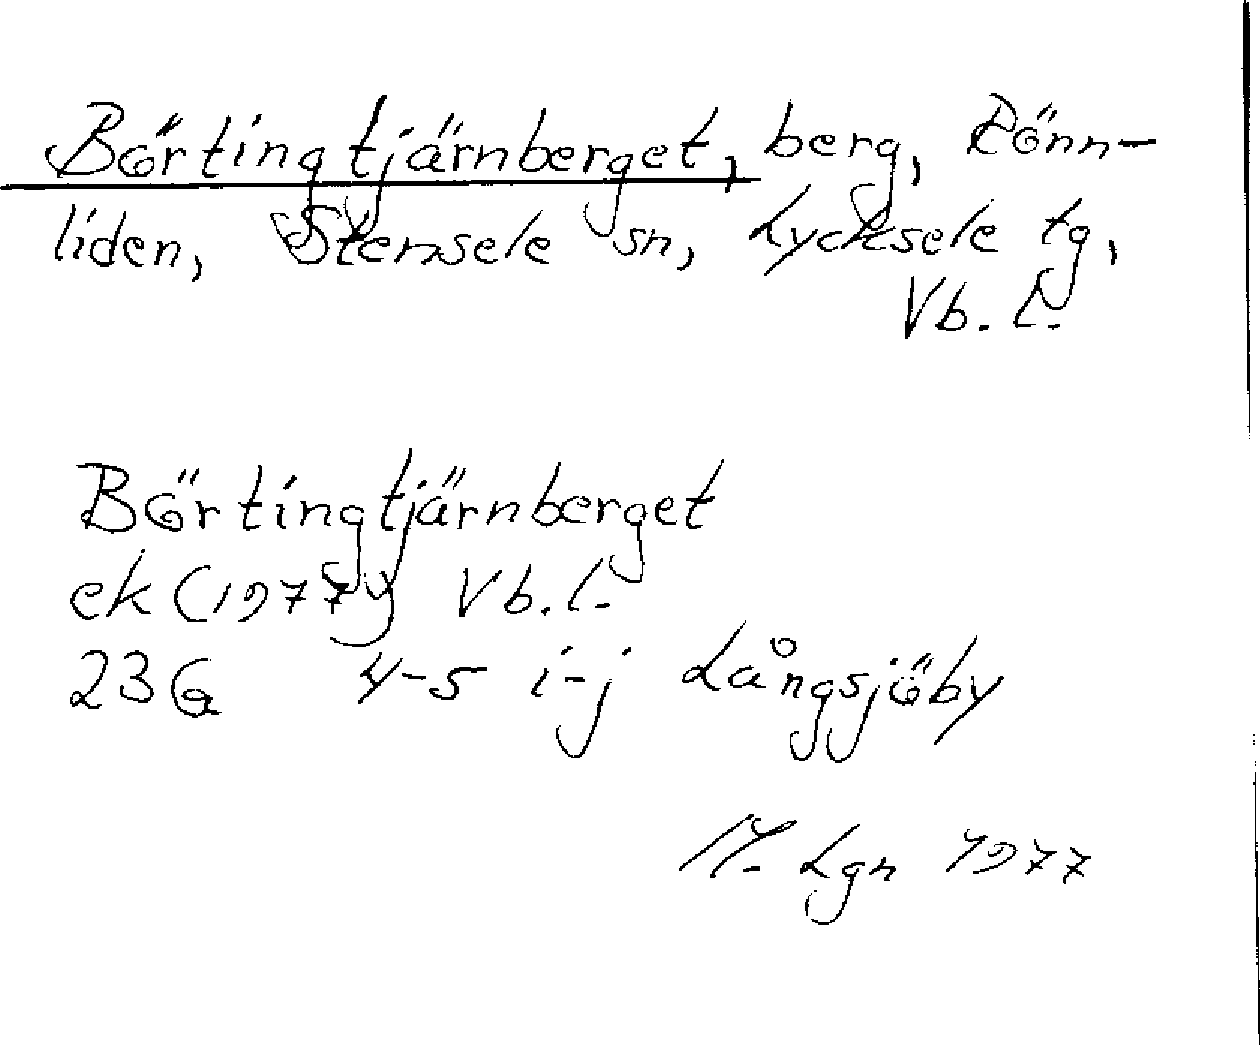 Börtingtjärnberget, berg, Rönn-
liden, Stensele sn, Lycksele tg,
Vb. l.
Börtingtjärnberget
ek (1977) Vb. l.
23G 4-5 i-j Långsjöby
Lgn 1977